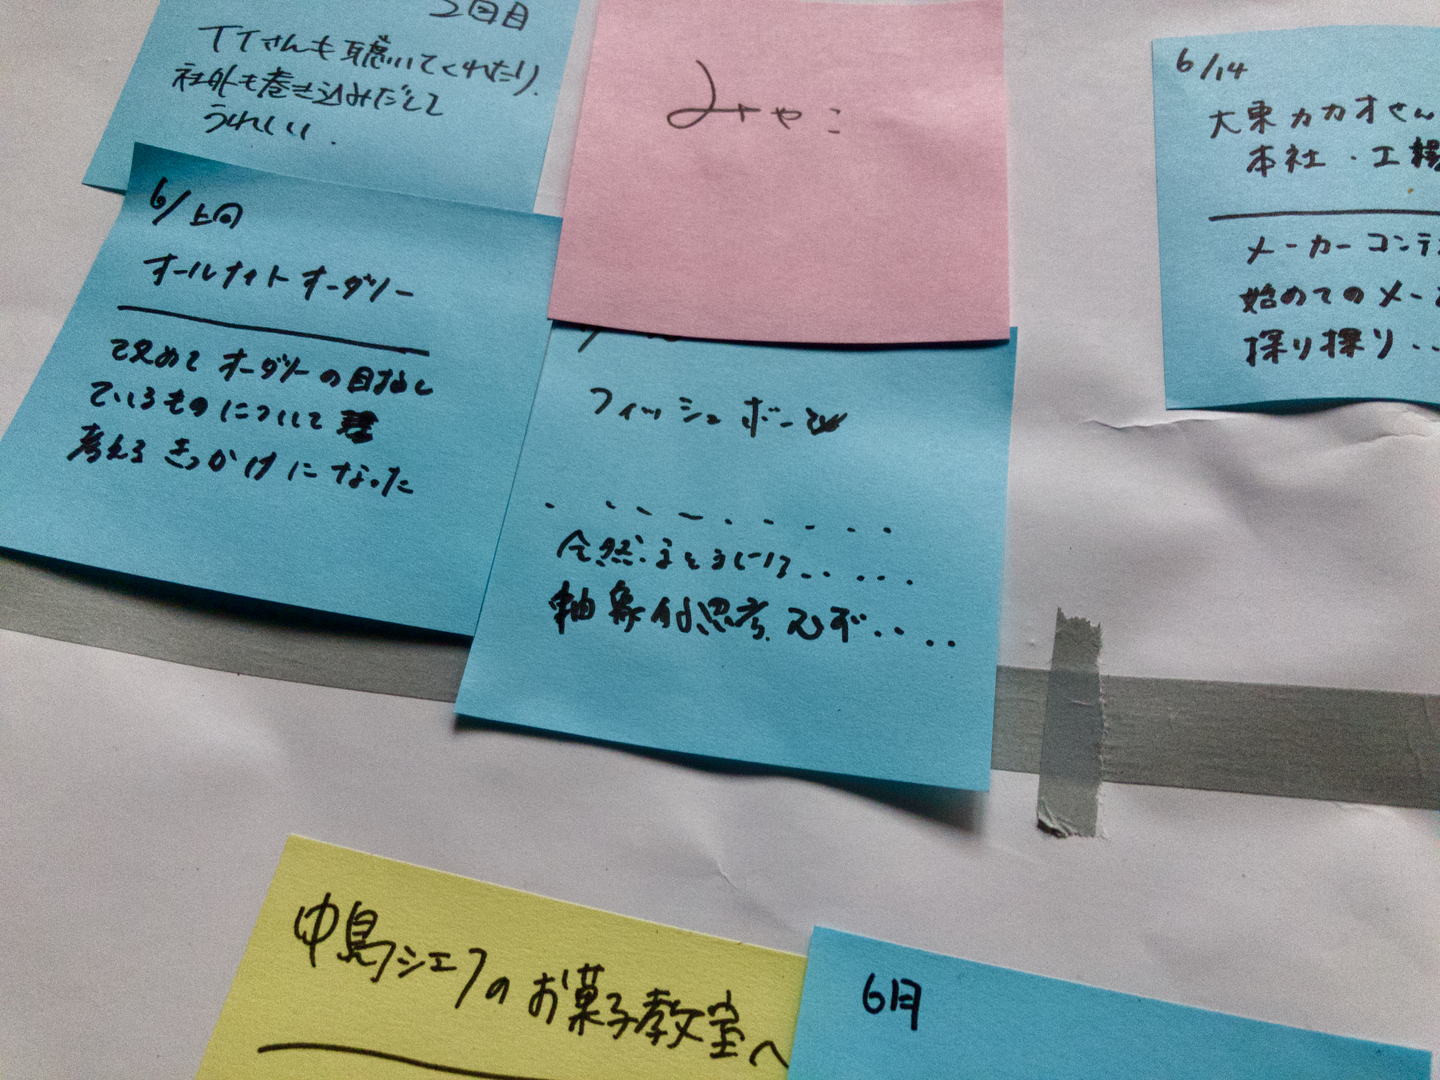 2回目
TTさんも聴いてくれたり、
社外も巻き込みだして
うれしい.
みやこ
6/14
大東カカオさん
本社・工場
メーカーコンテ
始めてのメー
探り探り‥
6/上旬
オールナイトオーダリー
改めてオーダリーの目指し
ているものについて
考えるきっかけになった
フィッシュボーン
全然まとまらない.....
抽象的思考 ムズ....
中島シェフのお菓子教室へ
6月